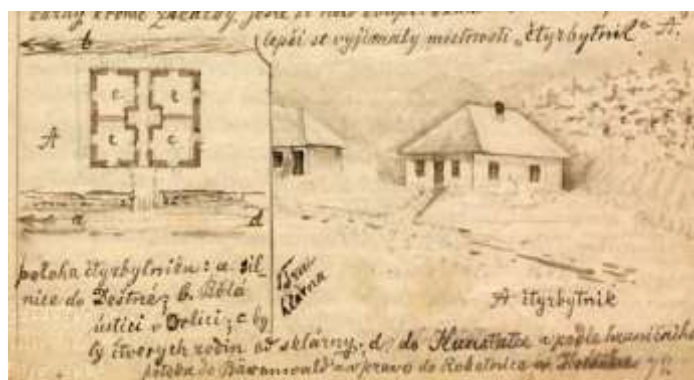 čárny kromě zahrady, ještě si
lepší se vyjímaly místnosti „čtyrbytník“ A.
b
c c
A
c c
a d
poloha čtyrbytníku: a. sil-
nice do Deštné; b. Bělá
ústící v Orlici; c by
ly čtverých rodin od sklárny. d, do Kunštátu a podle hraničního
potoka do Bärenwald a vpravo do Roketnice
klárna
A čtyrbytník